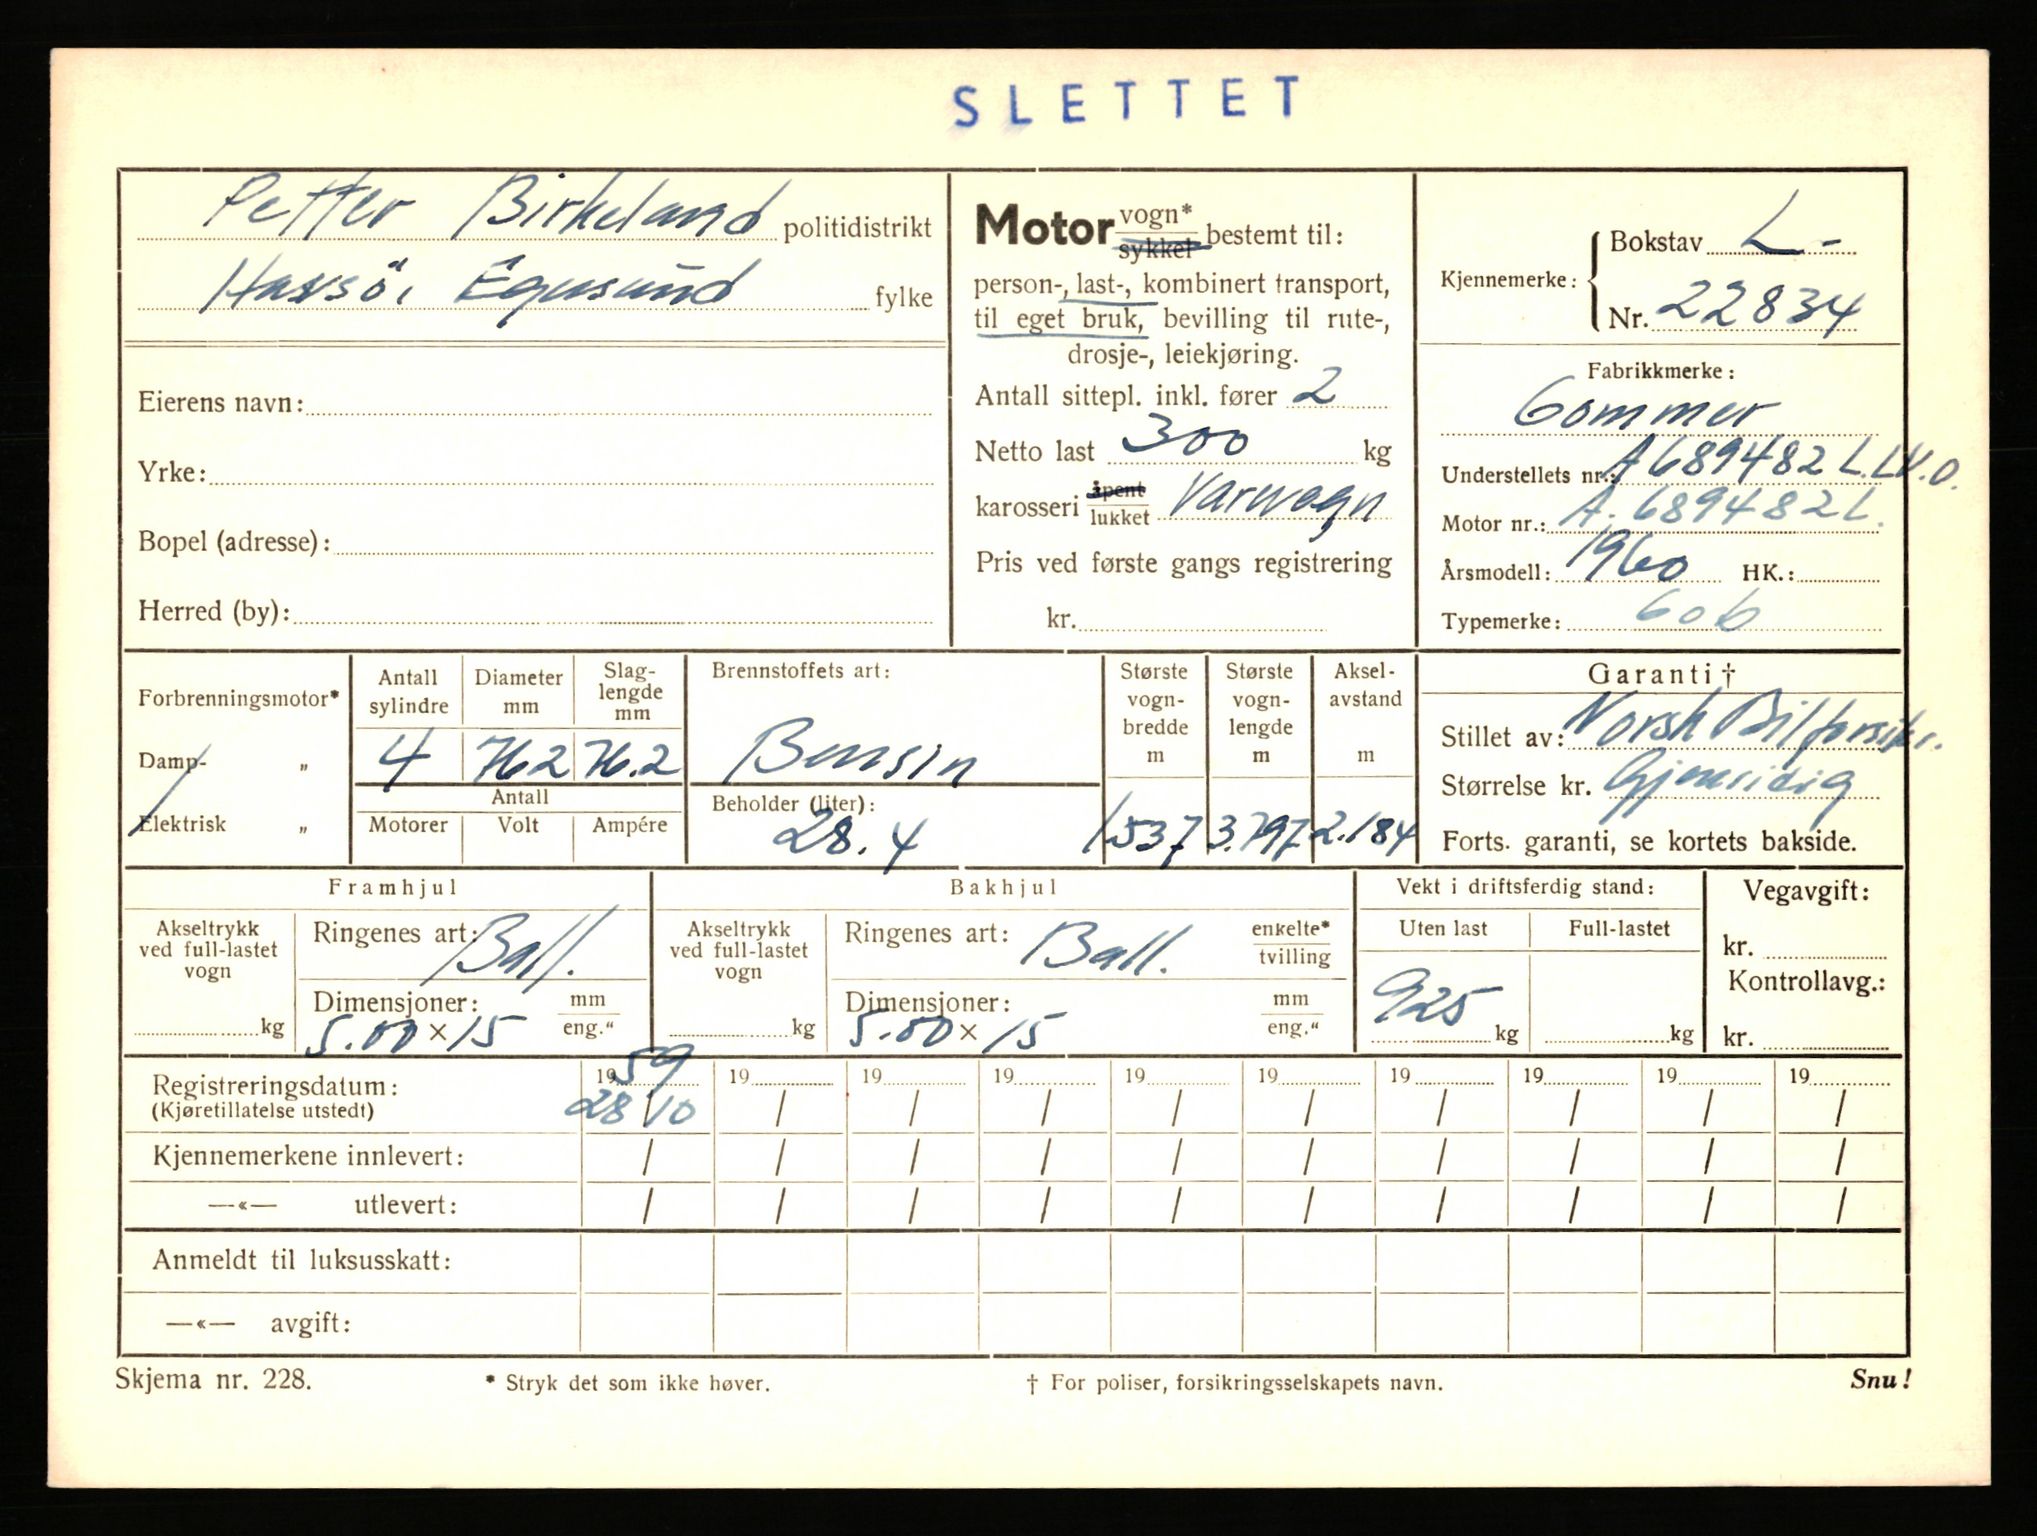 SLETTET
Petter Birkeland politidistrikt
Havsö, Egersund fylke
Eierens navn:
Yrke:
Bopel (adresse):
Herred (by):
Motor vogn* sykkel bestemt til:
person-, last-, kombinert transport,
til eget bruk, bevilling til rute-,
drosje-, leiekjøring.
Antall sittepl. inkl. fører 2
Netto last 300 kg
karosseri åpent lukket Varevogn
Pris ved første gangs registrering
kr.
Kjennemerke: Bokstav L-
Nr. 22834
Fabrikkmerke:
Commer
Understellets nr.: A689482L.LV.O.
Motor nr.: A.689482L.
Årsmodell: 1960 HK.:
Typemerke: Cob
Forbrenningsmotor*
Damp- „
Elektrisk „
Antall sylindre Diameter mm Slag-lengde mm
4 762 76.2
Antall
Motorer Volt Ampére
Brennstoffets art:
Bensin
Beholder (liter):
28.4
Største vogn-bredde m Største vogn-lengde m Aksel-avstand m
1537 3.797 2.184
Garanti †
Stillet av: Norsk Bilforsikr.
Størrelse kr. Gjensidig
Forts. garanti, se kortets bakside.
Framhjul
Akseltrykk ved full-lastet vogn
kg
Ringenes art: Ball.
Dimensjoner: mm eng."
5.00 × 15
Bakhjul
Akseltrykk ved full-lastet vogn
kg
Ringenes art: Ball. enkelte* tvilling
Dimensjoner: mm eng."
5.00 × 15
Vekt i driftsferdig stand:
Uten last Full-lastet
925 kg kg
Vegavgift:
kr.
Kontrollavg.:
kr.
Registreringsdatum: 1959 19 19 19 19 19 19 19 19 19
(Kjøretillatelse utstedt) 28/10 / / / / / / / / /
Kjennemerkene innlevert: / / / / / / / / / /
—«— utlevert: / / / / / / / / / /
Anmeldt til luksusskatt:
—«— avgift:
Skjema nr. 228. * Stryk det som ikke høver. † For poliser, forsikringsselskapets navn. Snu!